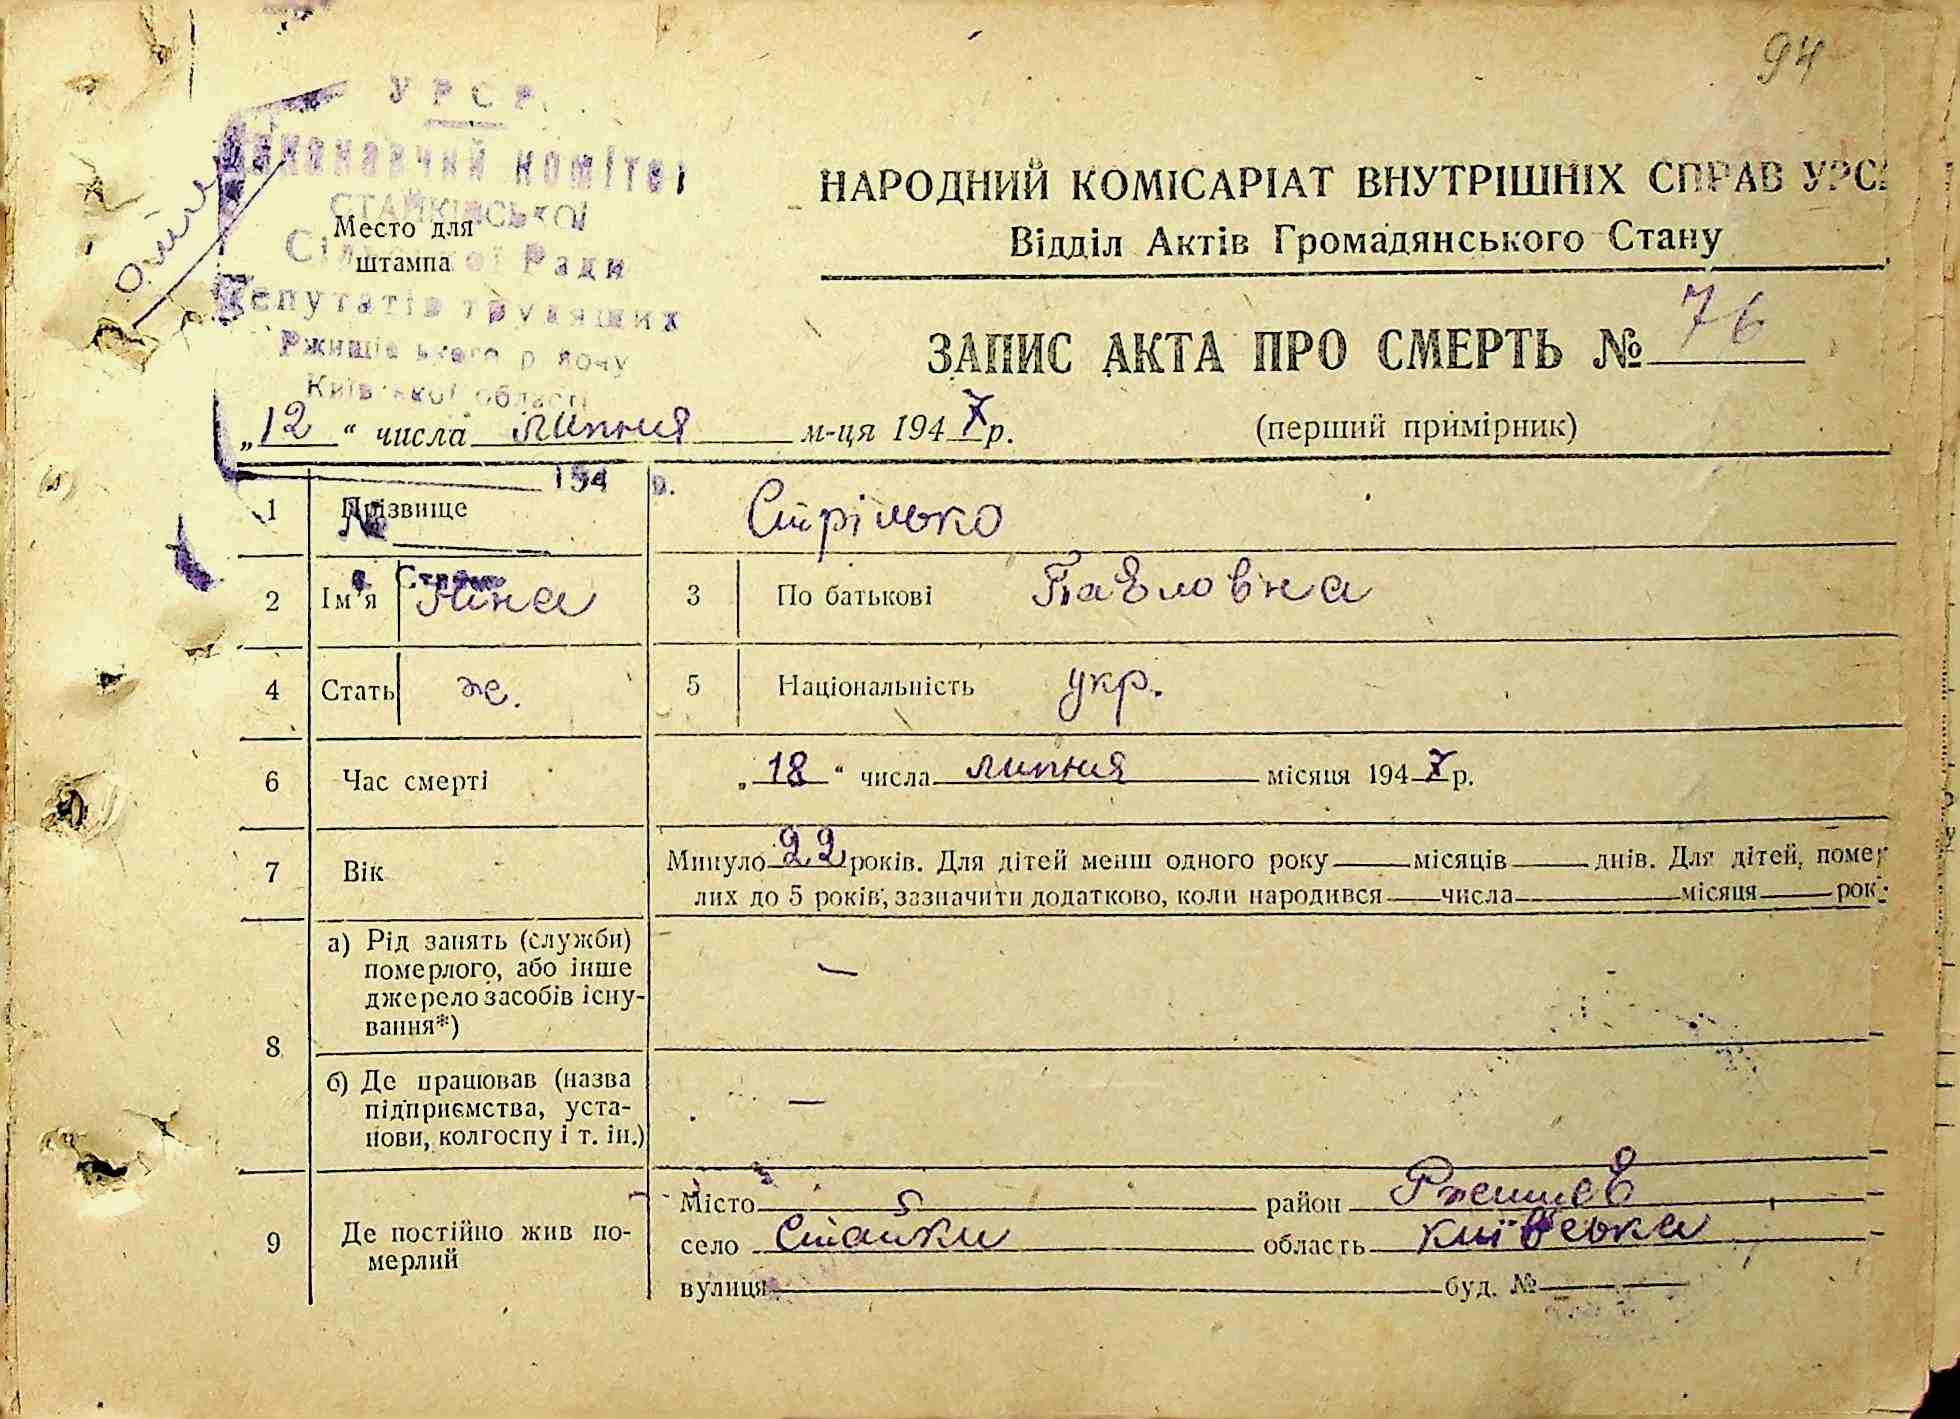 94
УРСР.
Виконавчий комітет
СТАЙКІВСЬКОЇ
Сільської Ради
Депутатів трудящих
Ржищівського району
Київської області
Место для
штампа
НАРОДНИЙ КОМІСАРІАТ ВНУТРІШНІХ СПРАВ УРС
Відділ Актів Громадянського Стану
ЗАПИС АКТА ПРО СМЕРТЬ № 76
„12“ числа липня м-ця 1947 р.
(перший примірник)
194 р.
1 Прізвище Стрілько
№
2 Ім'я Ніна 3 По батькові Павловна
4 Стать ж. 5 Національність укр.
6 Час смерті „18“ числа липня місяця 1947 р.
7 Вік Минуло 22 років. Для дітей менш одного року місяців днів. Для дітей, помер
лих до 5 років, зазначити додатково, коли народився числа місяця рок
8 а) Рід занять (служби)
померлого, або інше
джерело засобів існу-
вання*) —
б) Де працював (назва
підприємства, уста-
нови, колгоспу і т. ін.) —
9 Де постійно жив по-
мерлий
Місто район Ржищев
село Стайки область київська
вулиця буд. №